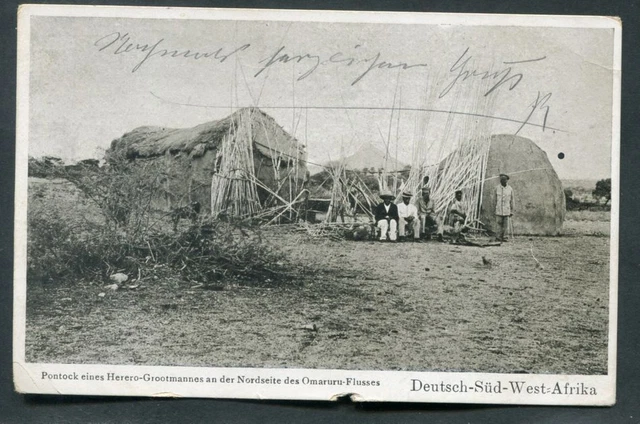 Nochmals herzlichen Gruß
R.
Pontock eines Herero-Grootmannes an der Nordseite des Omaruru-Flusses
Deutsch-Süd-West=Afrika